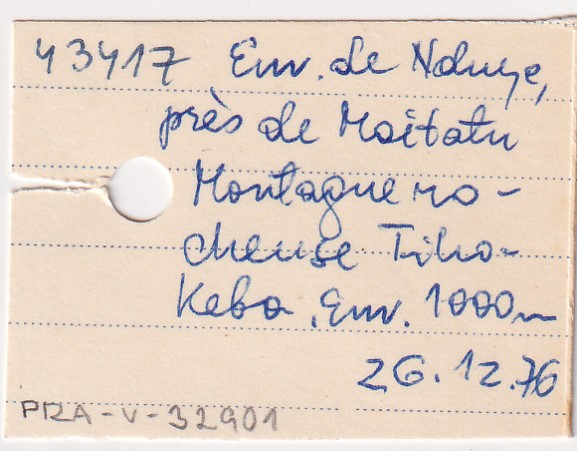 43417 Env. de Nduye,
près de Maitatu
Montagne ro-
cheuse Tiho-
Kebo. Env. 1000m
26.12.76
PRA-V-32901